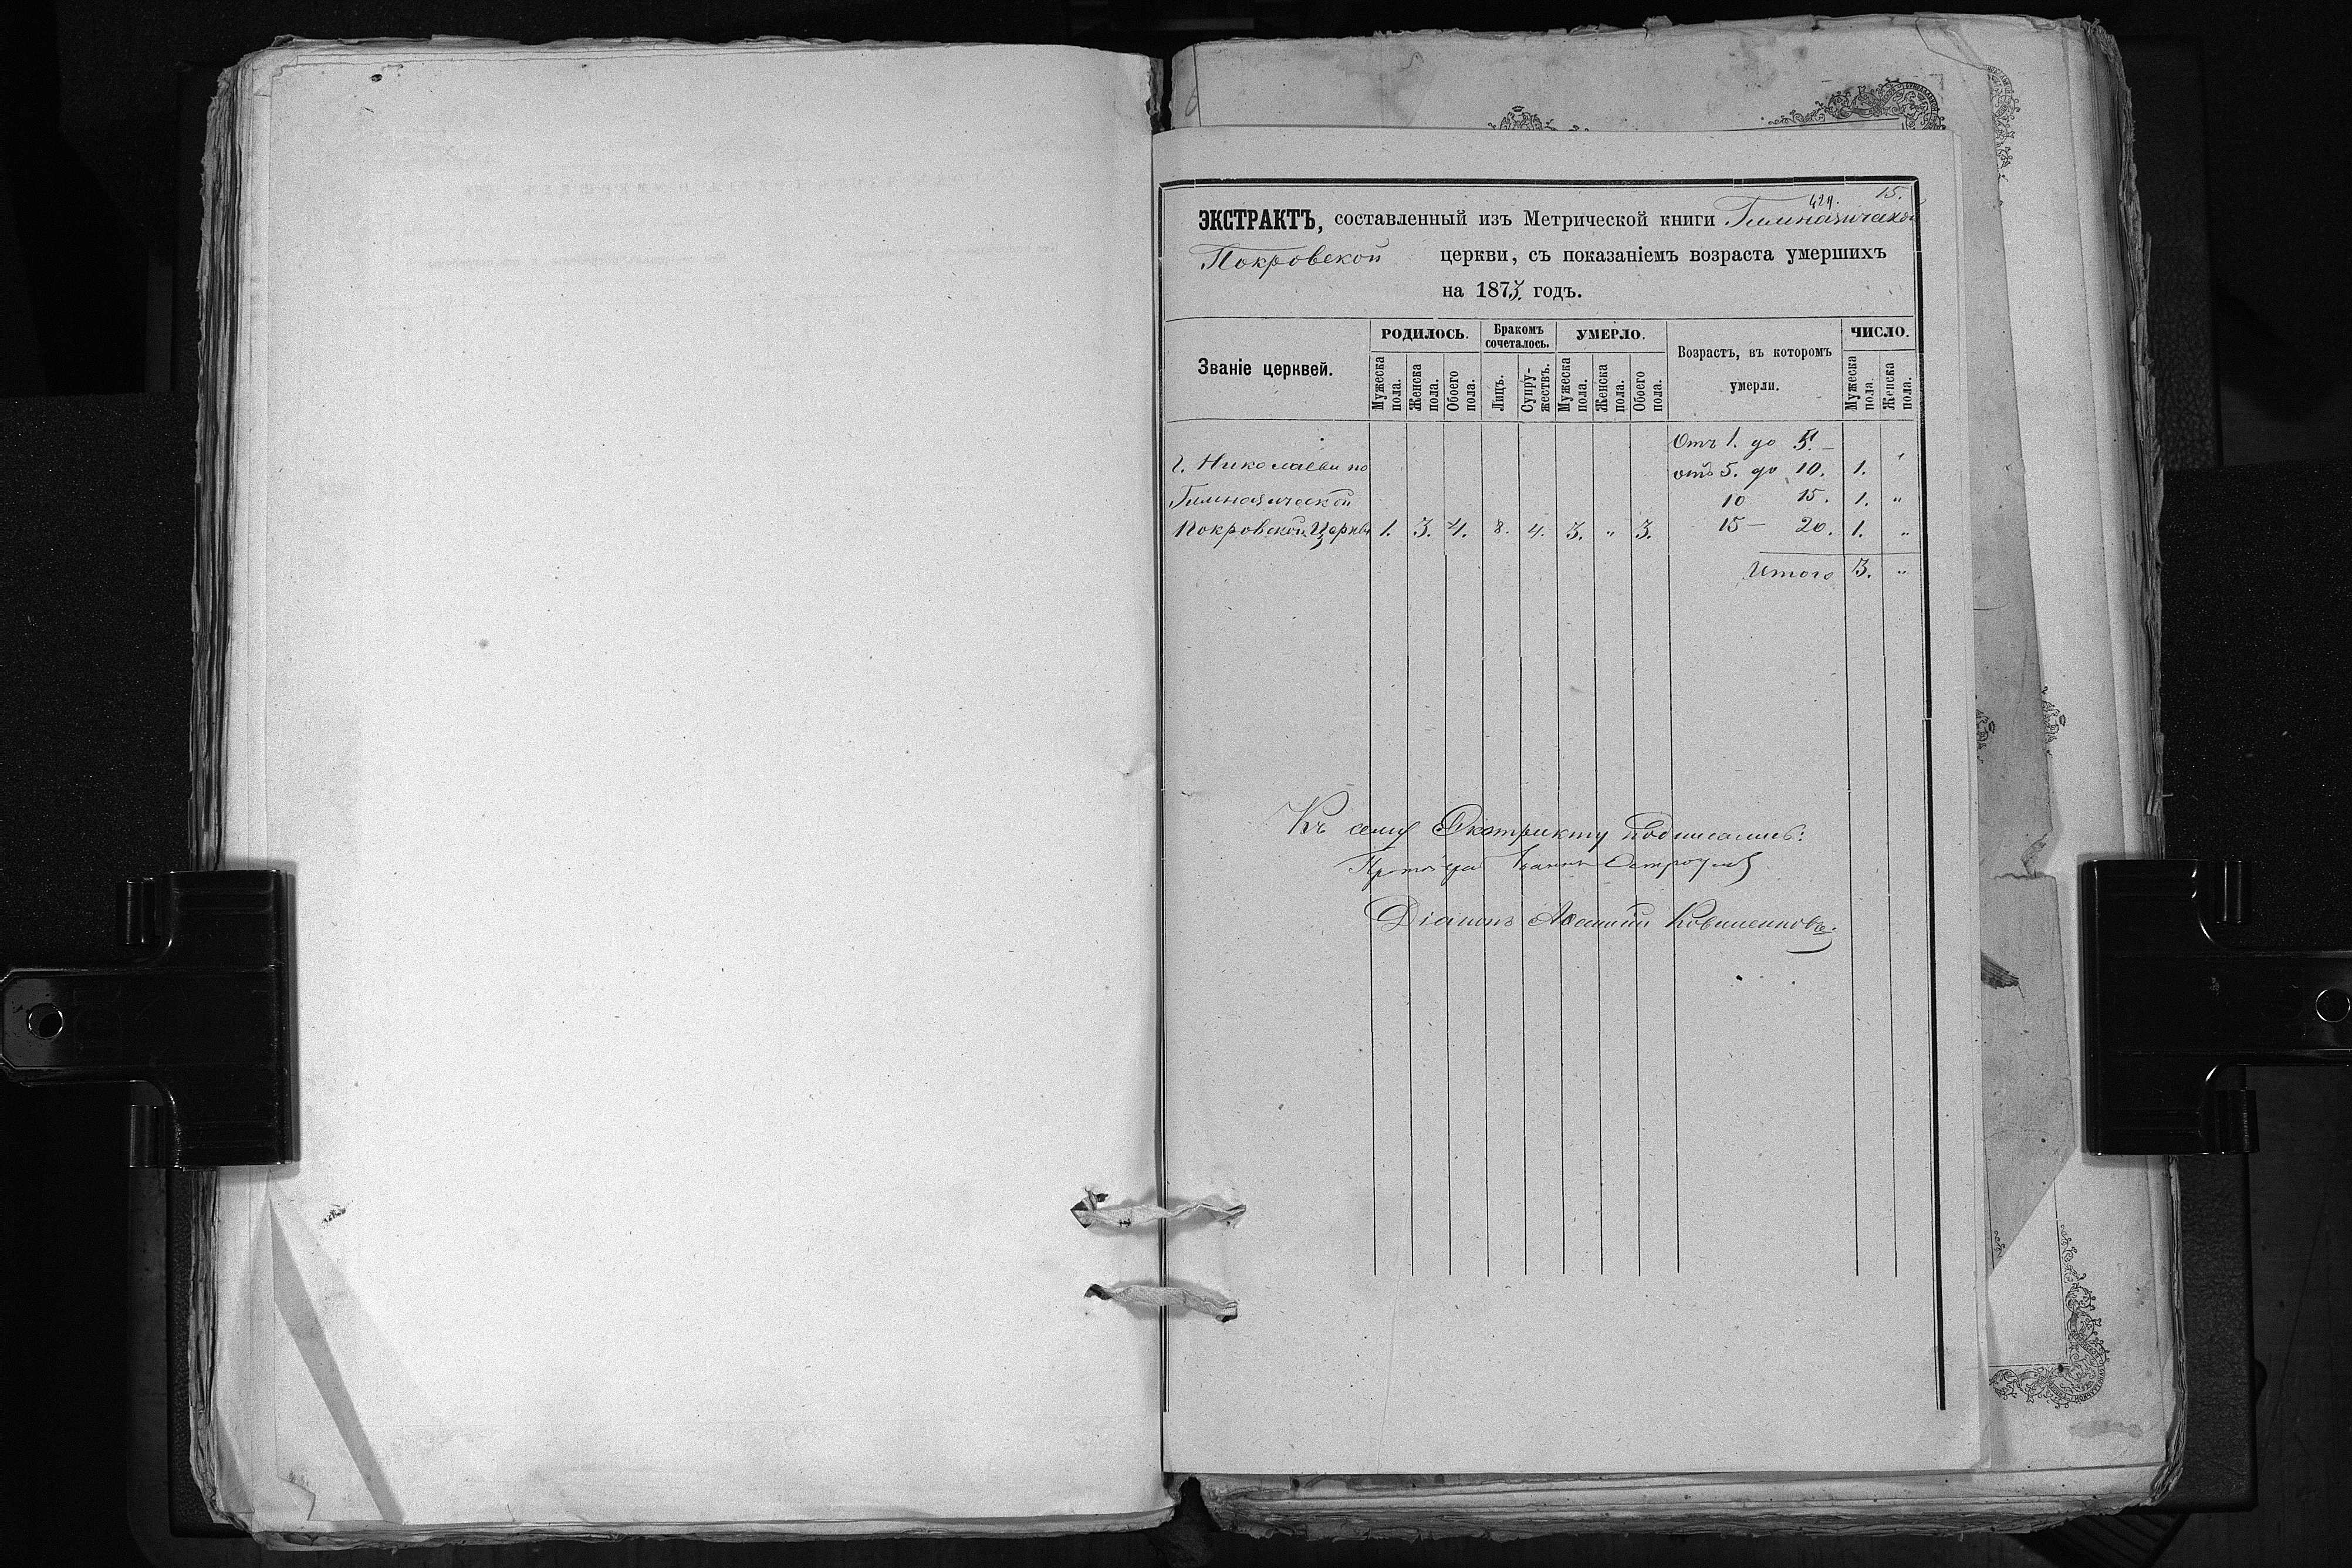 15.
429.
ЭКСТРАКТЪ, составленный изъ Метрической книги Гимназической
Покровской церкви, съ показаніемъ возраста умершихъ
на 1873. годъ.
Званіе церквей.
РОДИЛОСЬ.
Бракомъ сочеталось.
УМЕРЛО.
Возрастъ, въ которомъ умерли.
ЧИСЛО.
Мужеска пола.
Женска пола.
Обоего пола.
Лицъ.
Супружествъ.
Мужеска пола.
Женска пола.
Обоего пола.
Мужеска пола.
Женска пола.
Отъ 1. до 5. –
г. Николаева по отъ 5. до 10. 1. "
Гимназической 10 15. 1. "
Покровской Церкви 1. 3. 4. 8. 4. 3. " 3. 15 – 20. 1. "
Итого 3. "
Къ сему Экстракту подписались:
Протоіерей Іоаннъ
Діаконъ